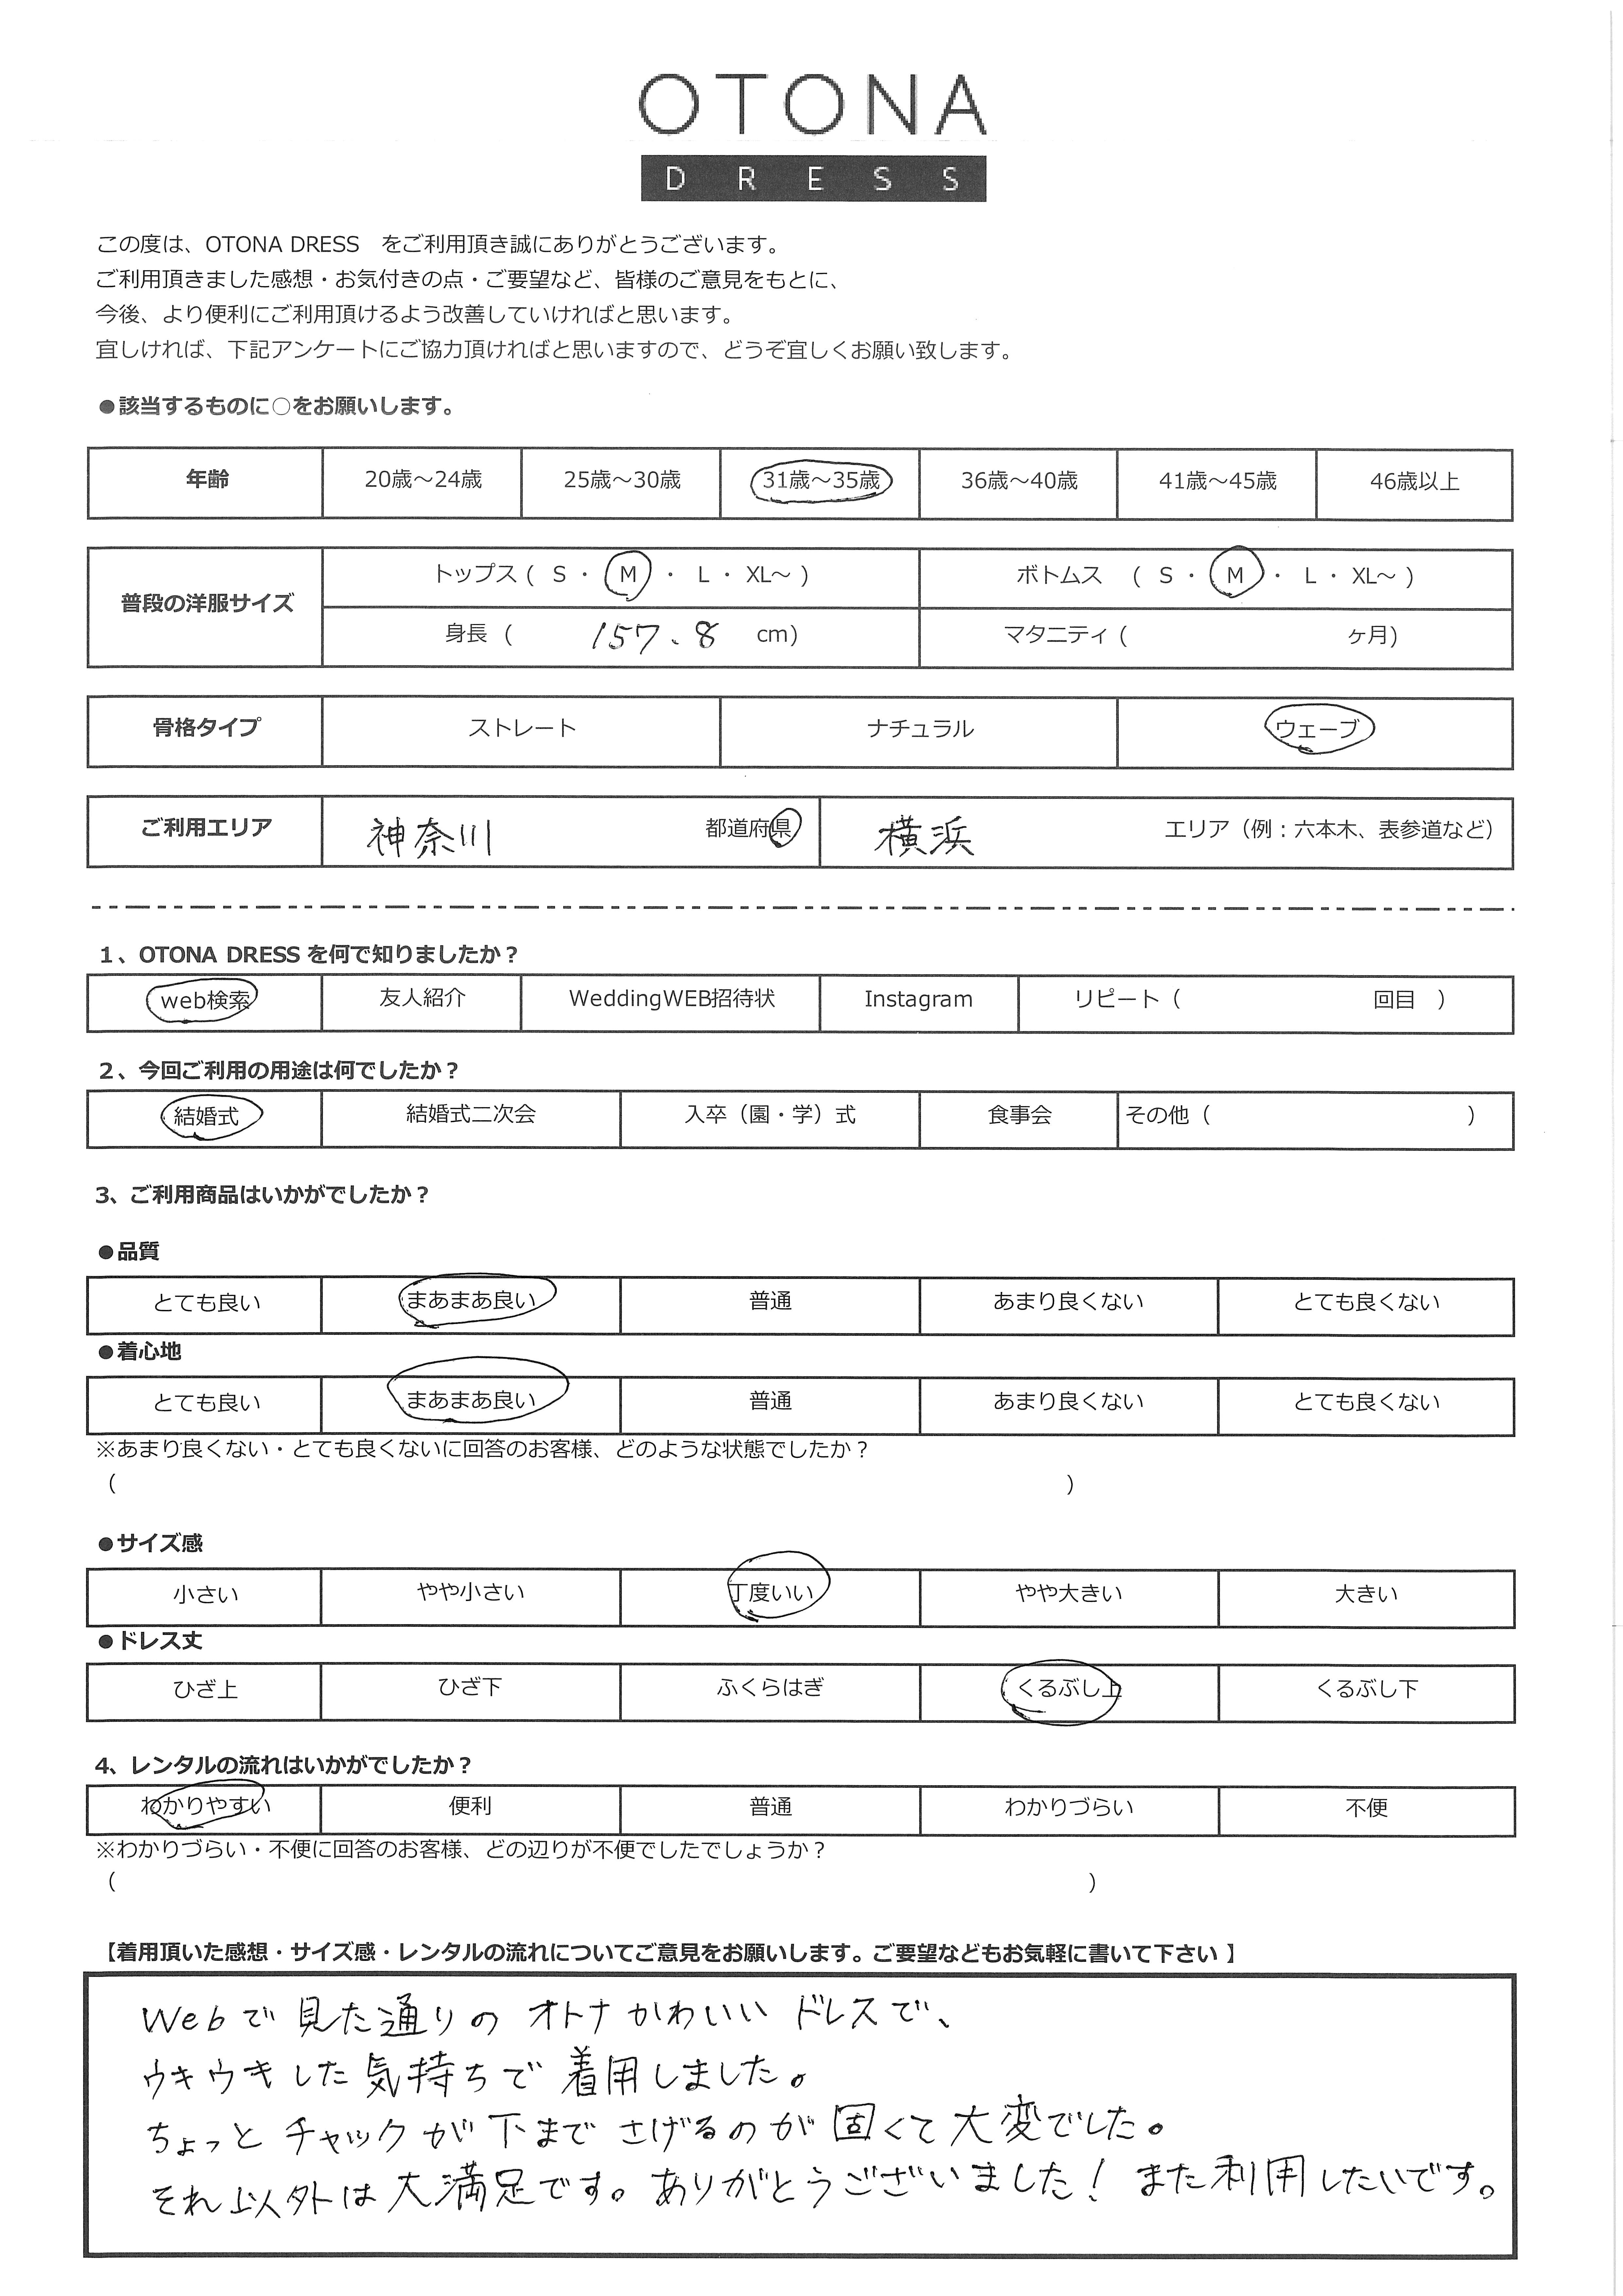 OTONA
DRESS
この度は、OTONA DRESS　をご利用頂き誠にありがとうございます。
ご利用頂きました感想・お気付きの点・ご要望など、皆様のご意見をもとに、
今後、より便利にご利用頂けるよう改善していければと思います。
宜しければ、下記アンケートにご協力頂ければと思いますので、どうぞ宜しくお願い致します。
●該当するものに○をお願いします。
年齢 20歳～24歳 25歳～30歳 31歳～35歳 36歳～40歳 41歳～45歳 46歳以上
普段の洋服サイズ トップス ( S ・ M ・ L ・ XL～ ) ボトムス ( S ・ M ・ L ・ XL～ )
身長 ( 157.8 cm) マタニティ ( ヶ月)
骨格タイプ ストレート ナチュラル ウェーブ
ご利用エリア 神奈川 都道府県 横浜 エリア（例：六本木、表参道など）
1、OTONA DRESS を何で知りましたか？
web検索 友人紹介 WeddingWEB招待状 Instagram リピート（ 回目 ）
2、今回ご利用の用途は何でしたか？
結婚式 結婚式二次会 入卒（園・学）式 食事会 その他（ ）
3、ご利用商品はいかがでしたか？
●品質
とても良い まあまあ良い 普通 あまり良くない とても良くない
●着心地
とても良い まあまあ良い 普通 あまり良くない とても良くない
※あまり良くない・とても良くないに回答のお客様、どのような状態でしたか？
（ ）
●サイズ感
小さい やや小さい 丁度いい やや大きい 大きい
●ドレス丈
ひざ上 ひざ下 ふくらはぎ くるぶし上 くるぶし下
4、レンタルの流れはいかがでしたか？
わかりやすい 便利 普通 わかりづらい 不便
※わかりづらい・不便に回答のお客様、どの辺りが不便でしたでしょうか？
（ ）
【着用頂いた感想・サイズ感・レンタルの流れについてご意見をお願いします。ご要望などもお気軽に書いて下さい 】
Webで見た通りの オトナかわいい ドレスで、
ウキウキした気持ちで着用しました。
ちょっと チャックが下まで さげるのが固くて大変でした。
それ以外は大満足です。ありがとうございました！また利用したいです。